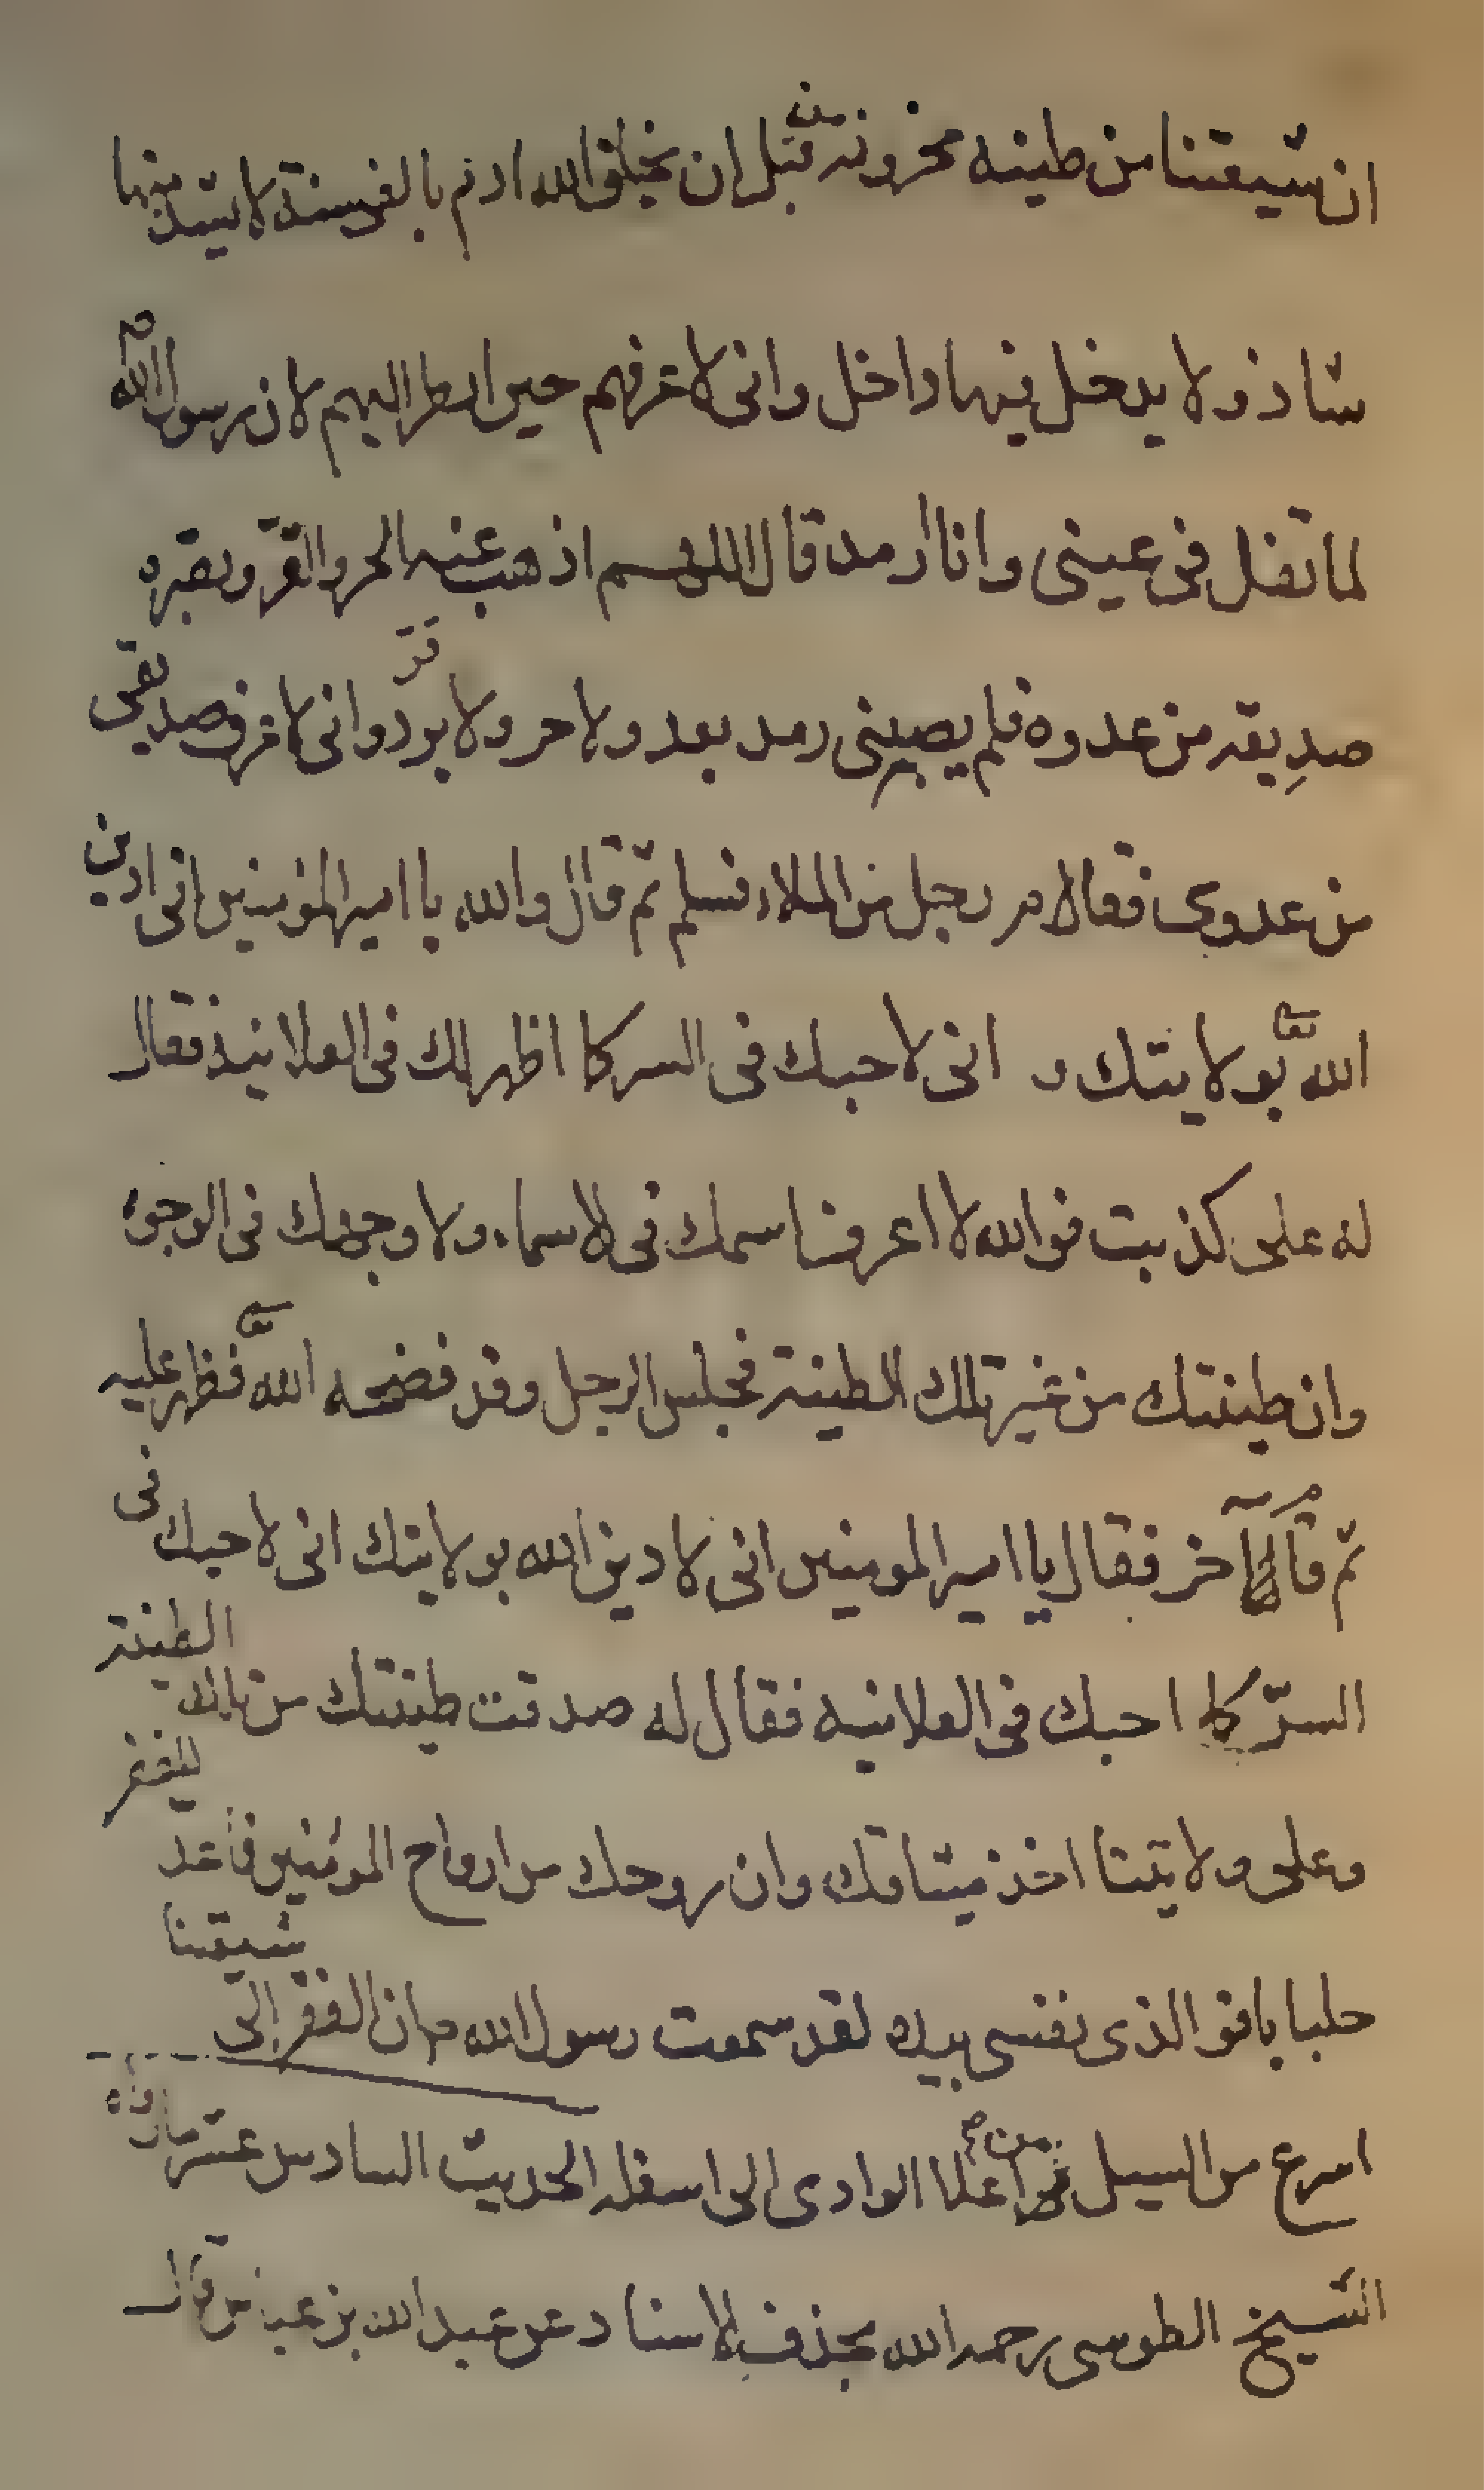 ان شيعتنا من طينه مخزونة من قبل ان يخلق الله ادم بالفى سنة لا يشذ منها
شاذ ولا يدخل فيها داخل وانى لاعرفهم حين انظر اليهم لان رسول الله ص
لما تفل فى عينى وانا ارمد قال اللهم اذهب عنه الحر والقر وبصره
صديقه من عدوه فلم يصيبنى رمد بعد ولا حر ولا برد قر وانى لاعرف صديقى
من عدوى فقام رجل من الملاء فسلم ثم قال والله يا امير المؤمنين انى ادين
الله تعا بولايتك و انى لاحبك فى السر كما اظهر لك فى العلانية فقال
له على كذبت فوالله لا اعرف اسمك فى الاسماء ولا وجهك فى الوجوه
وان طينتك من غير تلك الطينة فجلس الرجل وقد فضحه الله تعا فظهر عليه
ثم قام آخر فقال يا امير المومنين انى لادين الله بولايتك انى لاحبك فى
السرّ كما احبك فى العلانيه فقال له صدقت طينتك من تلك الطينة
وعلى ولايتنا اخذ ميثاقك وان روحك من ارواح المؤمنين فاعد للفقر
جلبابا فو الذى نفسى بيده لقد سمعت رسول الله ص ان الفقر الى شيعتنا
اسرع من السيل من اعلا الوادى الى اسفله الحديث السادس عشر ما رواه
الشيخ الطوسى رحمه الله بحذف الاسناد عن عبد الله بن عباس قال